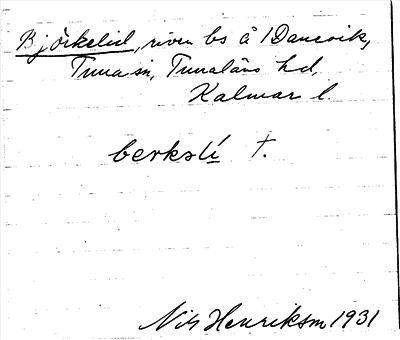 Björkelid, riven bs å 1 Danevik,
Tuna sn, Tunaläns hd,
Kalmar l.
berkslí †.
Nils Henriksm 1931